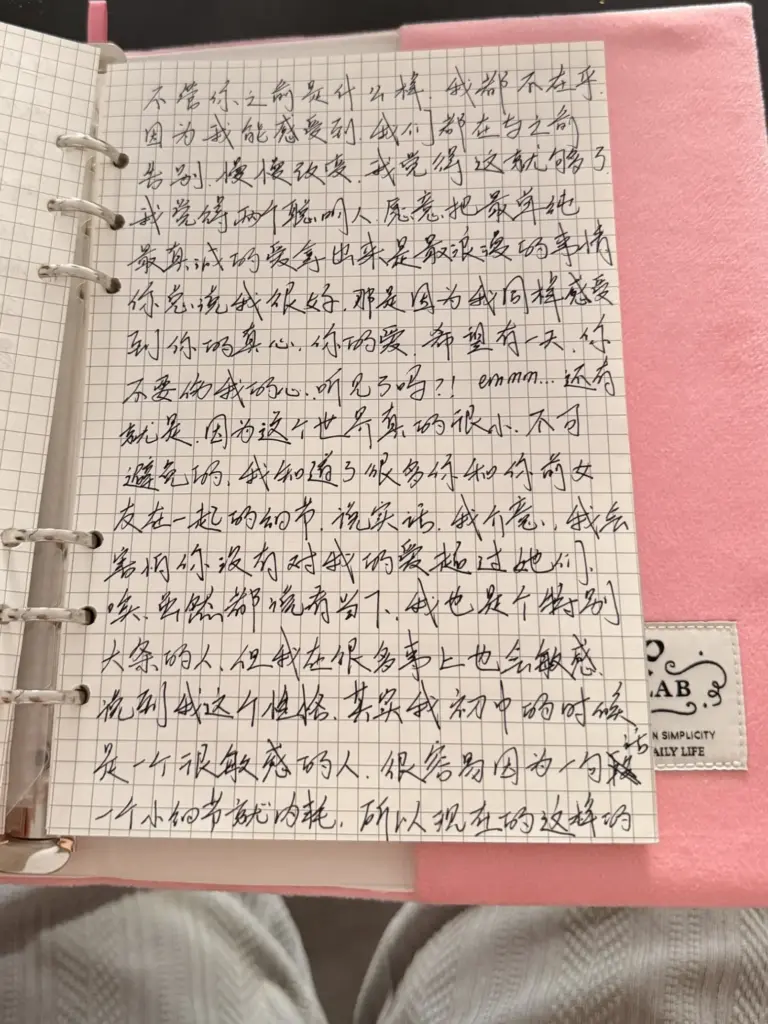 不管你之前是什么样，我都不在乎，
因为我能感受到，我们都在与之前
告别，慢慢改变，我觉得这就够了
我觉得两个聪明人愿意把最单纯
最真诚的爱拿出来是最浪漫的事情
你总说我很好，那是因为我同样感受
到你的真心，你的爱，希望有一天，你
不要伤我的心，听见了吗？！emmm...还有
就是，因为这个世界真的很小，不可
避免的，我知道了很多你和你前女
友在一起的细节，说实话，我介意，我会
害怕你没有对我的爱超过她们，
唉，虽然都说着当下，我也是个特别
大条的人，但我在很多事上也会敏感，
说到我这个性格，其实我初中的时候
是一个很敏感的人，很容易因为一句话
一个小细节就内耗，所以现在的这样的
LAB
N SIMPLICITY
AILY LIFE